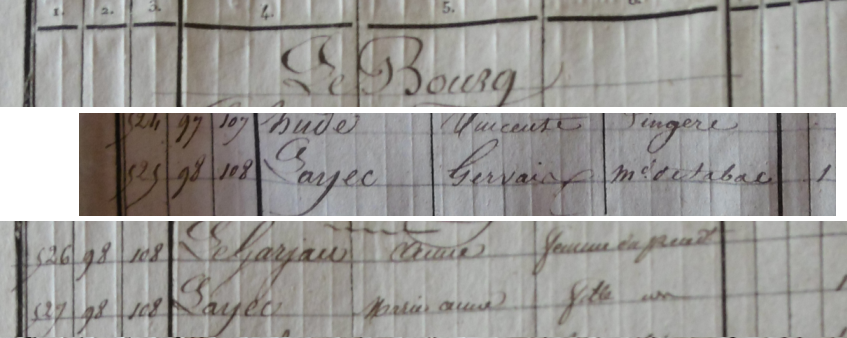 1. 2. 3. 4. 5. 6.
Le Bourg
524 97 107 hude Vincente lingere
525 98 108 Layec Gervais md de tabac 1
526 98 108 Le Garjau anne femme du precédt
527 98 108 Layec Marie anne fille 1